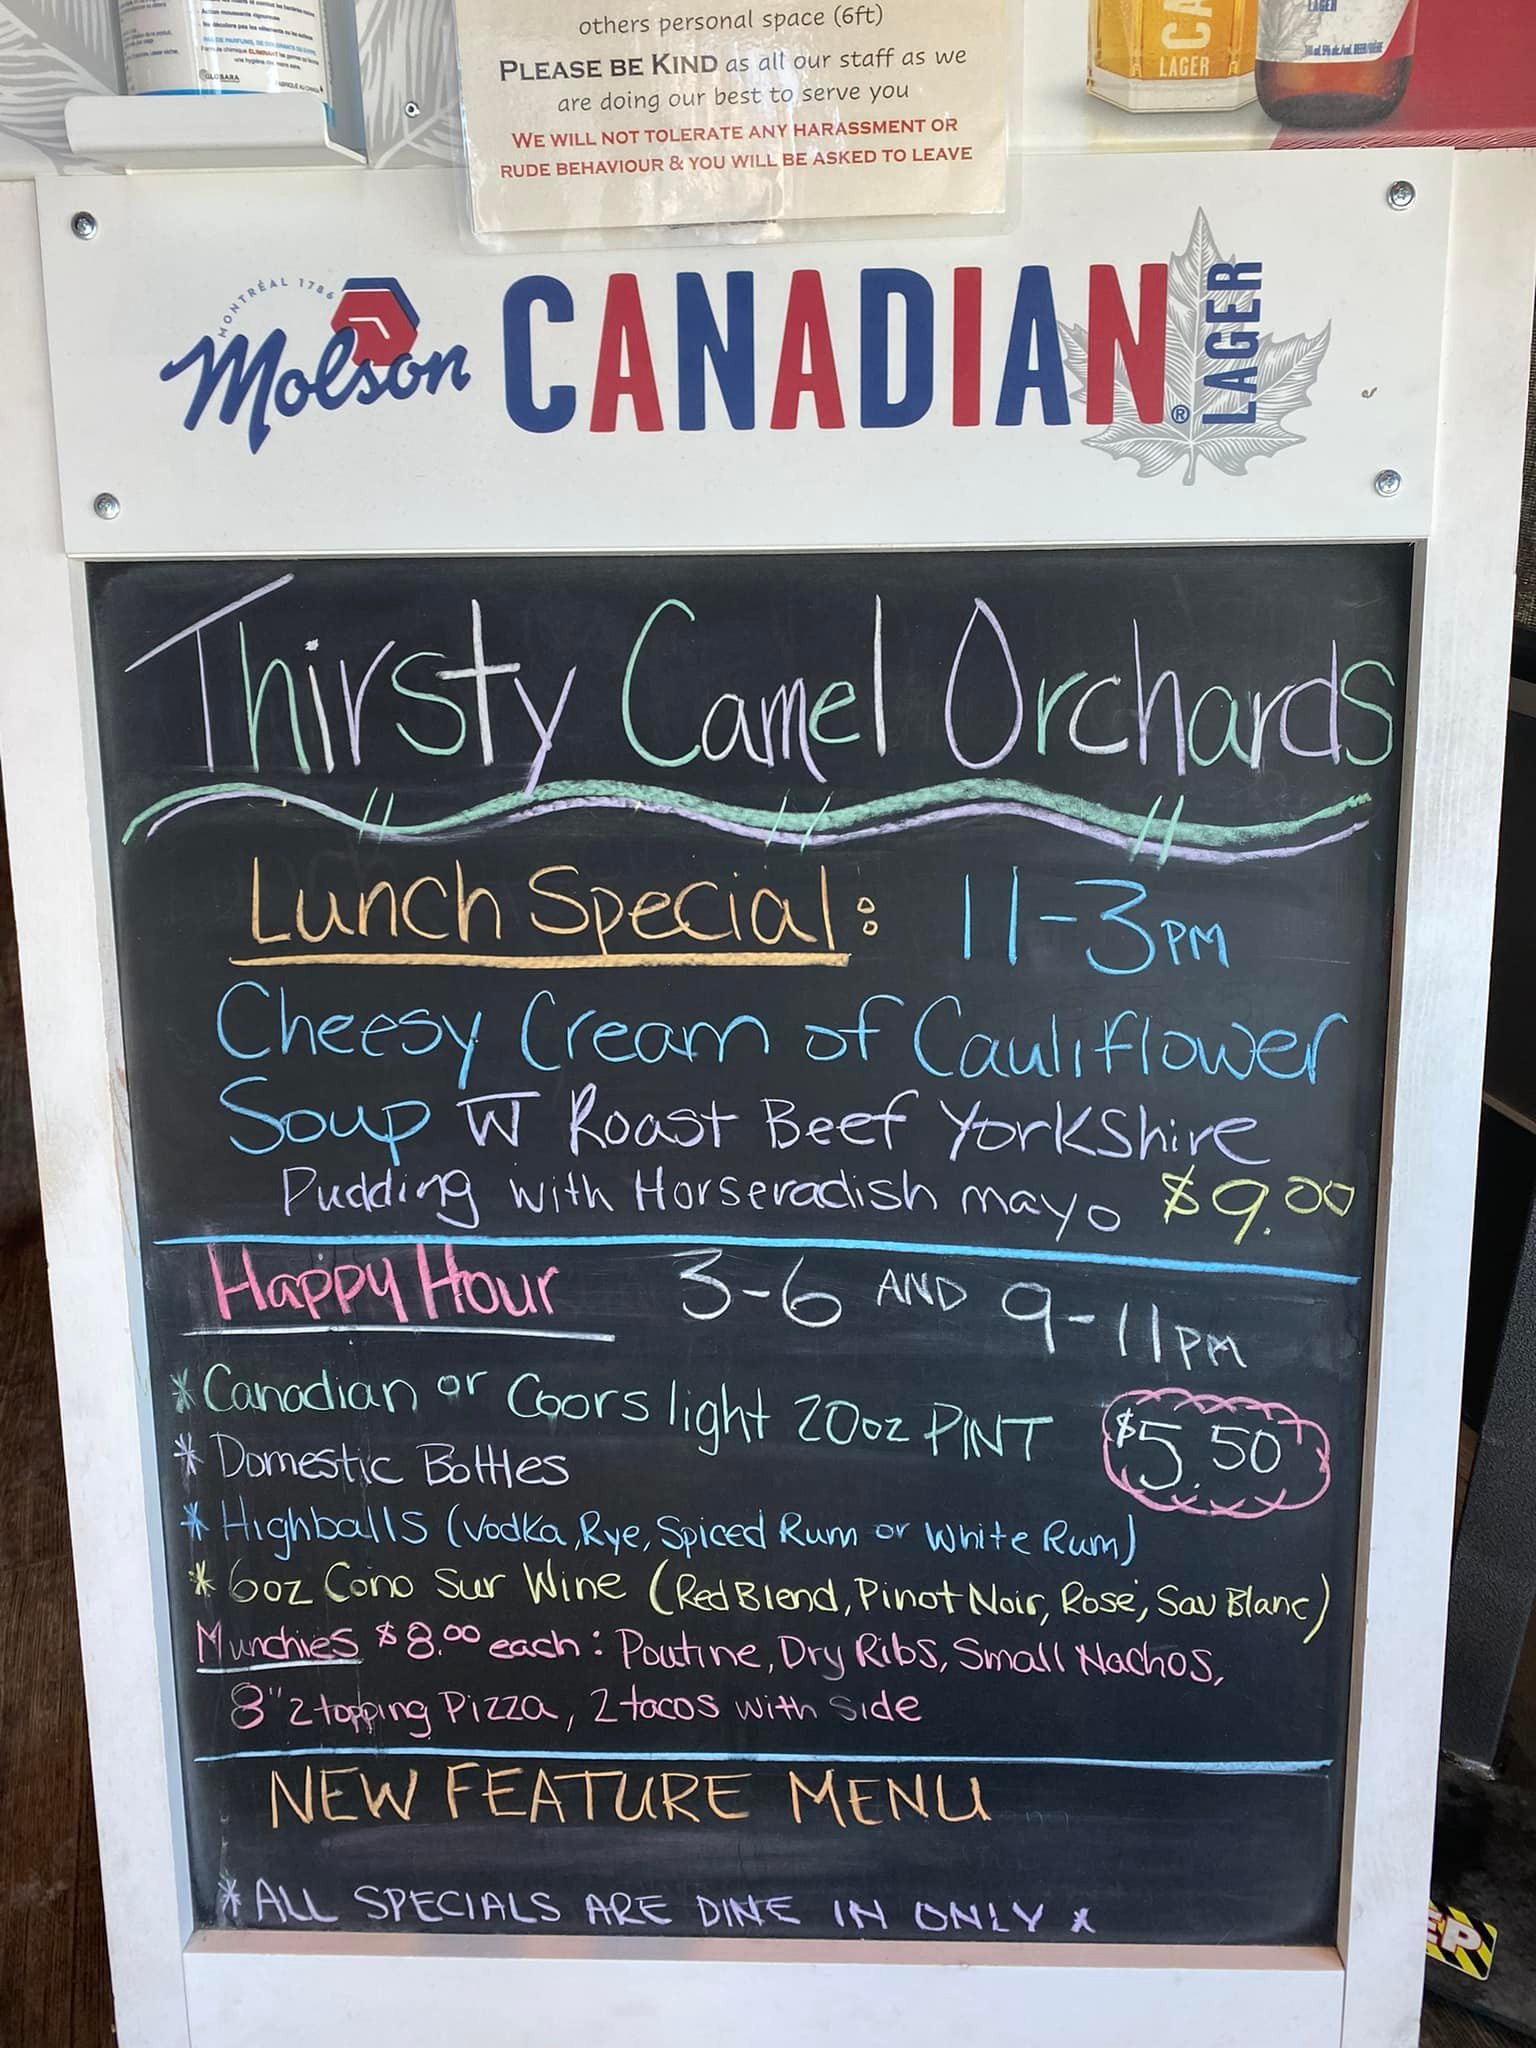 GLOBARA
others personal space (6ft)
PLEASE BE KIND as all our staff as we
are doing our best to serve you
WE WILL NOT TOLERATE ANY HARASSMENT OR
RUDE BEHAVIOUR & YOU WILL BE ASKED TO LEAVE
LAGER
LAGER
MONTRÉAL 1786
Molson CANADIAN® LAGER
Thirsty Camel Orchards
Lunch Special: 11-3PM
Cheesy Cream of Cauliflower
Soup W Roast Beef Yorkshire
Pudding with Horseradish mayo $9.00
Happy Hour 3-6 AND 9-11PM
*Canadian or Coors light 20oz PINT $5.50
* Domestic Bottles
* Highballs (Vodka, Rye, Spiced Rum or White Rum)
* 6oz Cono Sur Wine (Red Blend, Pinot Noir, Rosé, Sav Blanc)
Munchies $8.00 each: Poutine, Dry Ribs, Small Nachos,
8" 2 topping Pizza, 2 tacos with side
NEW FEATURE MENU
*ALL SPECIALS ARE DINE IN ONLY*
EP